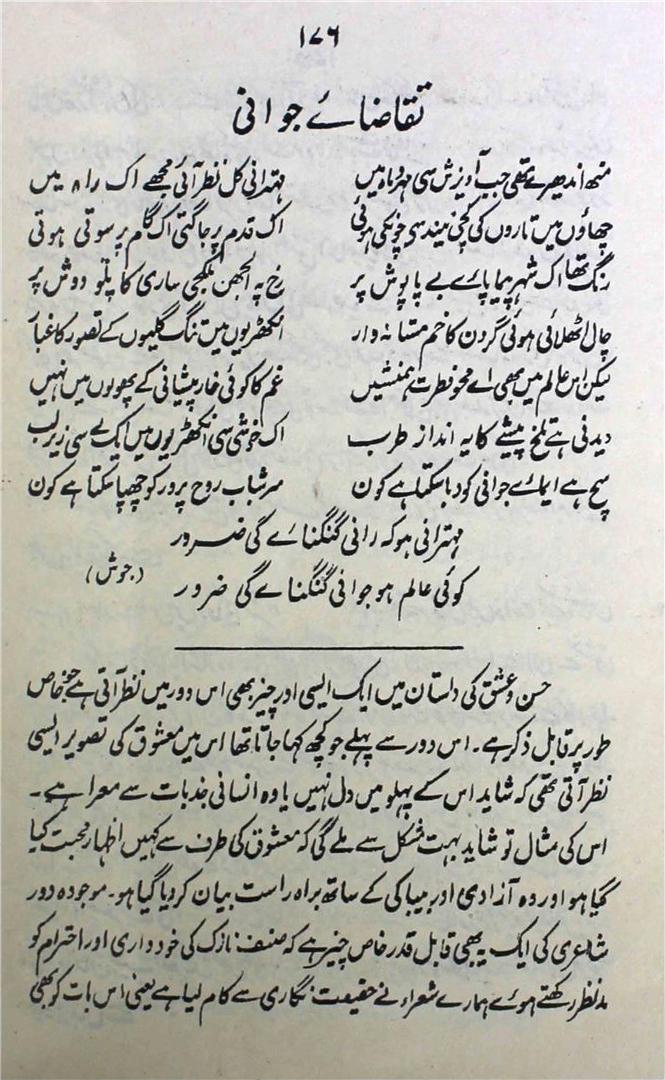 ۱۷۶
تقاضائے جوانی
منھ اندھیرے تھی جب آویزش سی مہر و ماہ میں مہترانی کل نظر آئی مجھے اک راہ میں
چھاؤں میں تاروں کی کچی نیند سی چونکی ہوئی اک قدم پر جاگتی اک گام پر سوتی ہوئی
رنگ تھا اک شہر پیما پائے بے پاپوش پر رخ پہ الجھن ملگجی ساری کا پلو دوش پر
چال اٹھلائی ہوئی گردن کا خم مستانہ وار انکھڑیوں میں تنگ گلیوں کے تصور کا غبار
لیکن اس عالم میں بھی اے محو فطرت ہمنشیں غم کا کوئی خار پیشانی کے پھولوں میں نہیں
دیدنی ہے تلخ پیشے کا یہ انداز طرب اک خوشی سی انکھڑیوں میں ایک لے سی زیر لب
سچ ہے ایمائے جوانی کو دبا سکتا ہے کون سر شباب روح پرور کو چھپا سکتا ہے کون
مہترانی ہو کہ رانی گنگنائے گی ضرور
کوئی عالم ہو جوانی گنگنائے گی ضرور (جوش)
حسن و عشق کی داستان میں ایک ایسی اور چیز بھی اس دور میں نظر آتی ہے جو خاص
طور پر قابل ذکر ہے۔ اس دور سے پہلے جو کچھ کہا جاتا تھا اس میں معشوق کی تصویر ایسی
نظر آتی تھی کہ شاید اس کے پہلو میں دل نہیں یا وہ انسانی جذبات سے معرا ہے۔
اس کی مثال تو شاید بہت مشکل سے ملے گی کہ معشوق کی طرف سے کہیں اظہار محبت کیا
گیا ہو اور وہ آزادی اور بیباکی کے ساتھ براہ راست بیان کر دیا گیا ہو۔ موجودہ دور
شاعری کی ایک یہ بھی قابل قدر خاص چیز ہے کہ صنف نازک کی خود داری اور احترام کو
مد نظر رکھتے ہوئے ہمارے شعراء نے حقیقت نگاری سے کام لیا ہے یعنی اس بات کو بھی